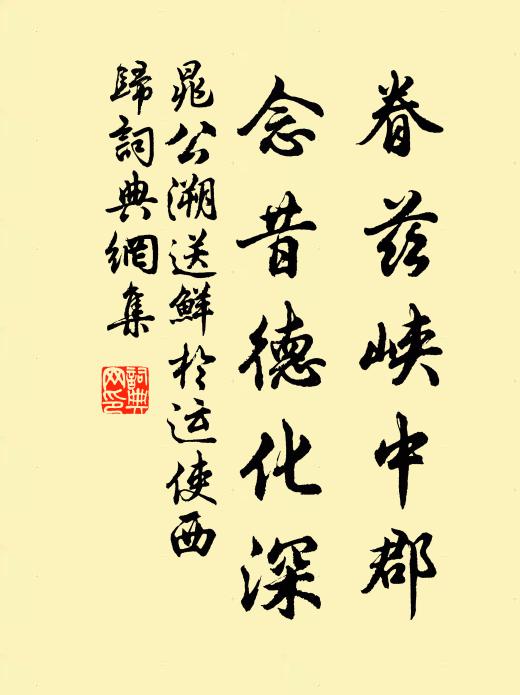 眷茲峽中郡
念昔德化深
晁公溯送鮮於运使西
歸詞典網集
詞典
网印